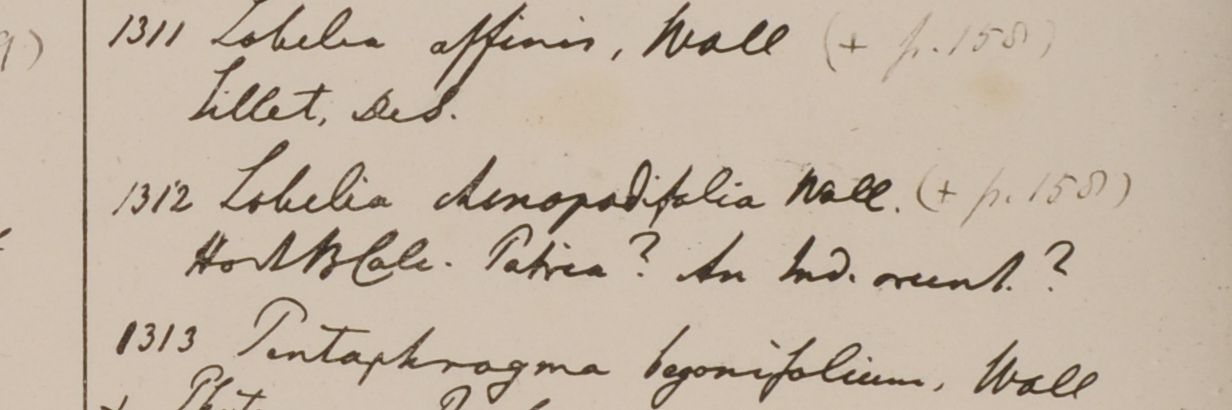 1311 Lobelia affinis, Wall (+ p. 158)
Sillet, DeS.
1312 Lobelia chenopodifolia Wall. (+ p. 158)
Hort B Calc. Patria? An Ind. orient.?
1313 Pentaphragma begonifolium, Wall